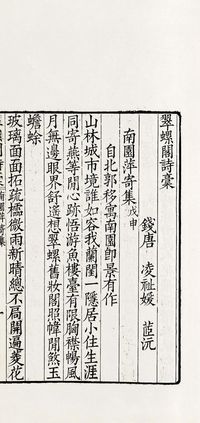 翠螺閣詩稾
錢唐 凌祉媛 茝沅
南園萍寄集戊申
自北郭移寓南園即景有作
山林城市境誰如容我闤闠一隱居小住生涯
同寄燕等閒心跡悟游魚樓臺有限胸襟暢風
月無邊眼界舒遙想翠螺舊妝閣照幃閒煞玉
蟾蜍
玻璃面面拓疏櫺微雨新晴總不扃開遍菱花